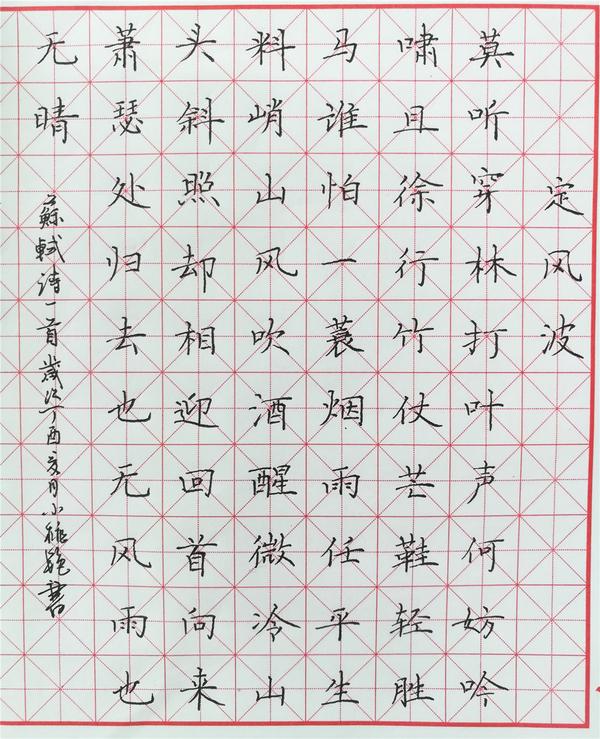 定风波
莫听穿林打叶声何妨吟
啸且徐行竹仗芒鞋轻胜
马谁怕一蓑烟雨任平生
料峭山风吹酒醒微冷山
头斜照却相迎回首向来
萧瑟处归去也无风雨也
无晴
蘇軾诗一首歲次丁酉亥月小書